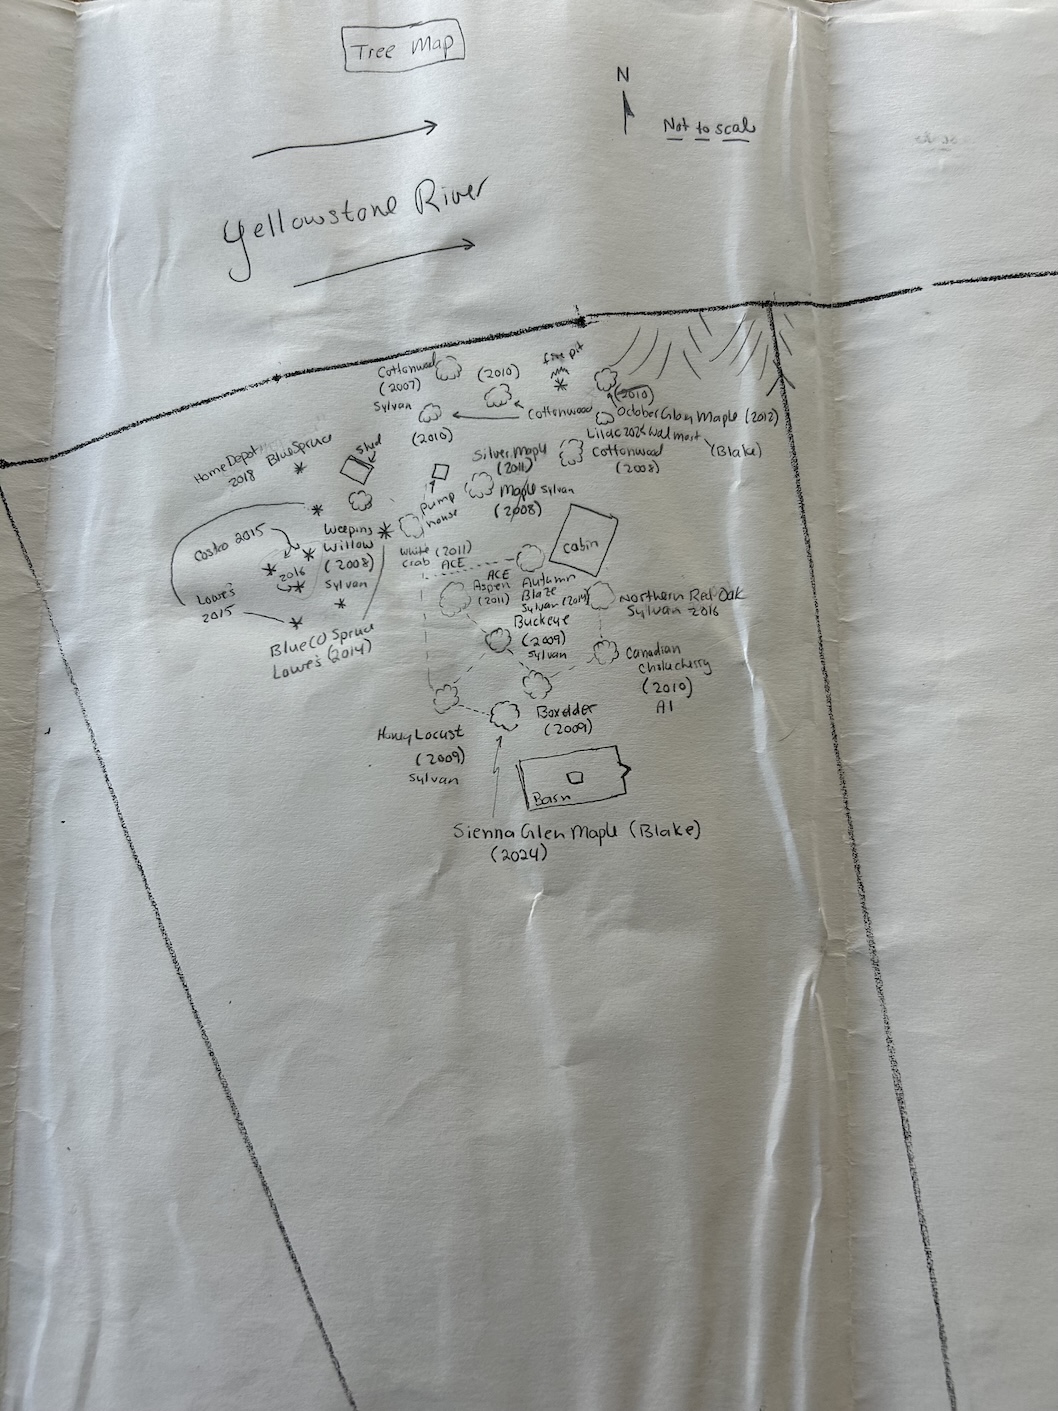 Tree Map
N
Not to scale
Yellowstone River
fire pit
Cottonwood
(2007)
Sylvan
(2010)
(2010)
(2010)
Cottonwood
October Glory Maple (2012)
Lilac 2024 Walmart
(Blake)
Cottonwood
(2008)
Silver Maple
(2011)
Maple Sylvan
(2008)
Shed
Blue Spruce
Home Depot
2018
pump
house
Weeping
Willow
(2008)
Sylvan
White (2011)
Crab ACE
Costco 2015
2016
Lowe's
2015
Blue (CO) Spruce
Lowe's (2014)
cabin
ACE
Aspen
(2011)
Autumn
Blaze
Sylvan (2014)
Northern Red Oak
Sylvan 2016
Buckeye
(2009)
Sylvan
Canadian
Chokecherry
(2010)
A1
Honey Locust
(2009)
Sylvan
Boxelder
(2009)
Barn
Sienna Glen Maple (Blake)
(2024)